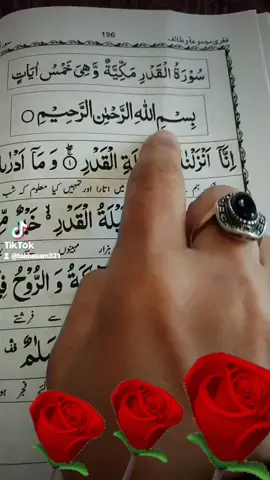 196
فقری مجموعۂ وظائف
سُوْرَةُ الْقَدْرِ مَكِّيَّةٌ وَّهِيَ خَمْسُ اٰيَاتٍ
بِسْمِ اللّٰهِ الرَّحْمٰنِ الرَّحِيْمِ
اِنَّاۤ اَنْزَلْنٰ لَةِ الْقَدْرِ ۝۱ وَ مَاۤ اَدْرٰ
ہم میں اتارا اور تمہیں کیا معلوم کہ شب
لَةُ الْقَدْرِ خَيْرٌ
ہزار مہینوں
ةُ وَ الرُّوْحُ فِيْ
فرشتے
سَلٰمٌ
فجر
TikTok
@tabbasam321